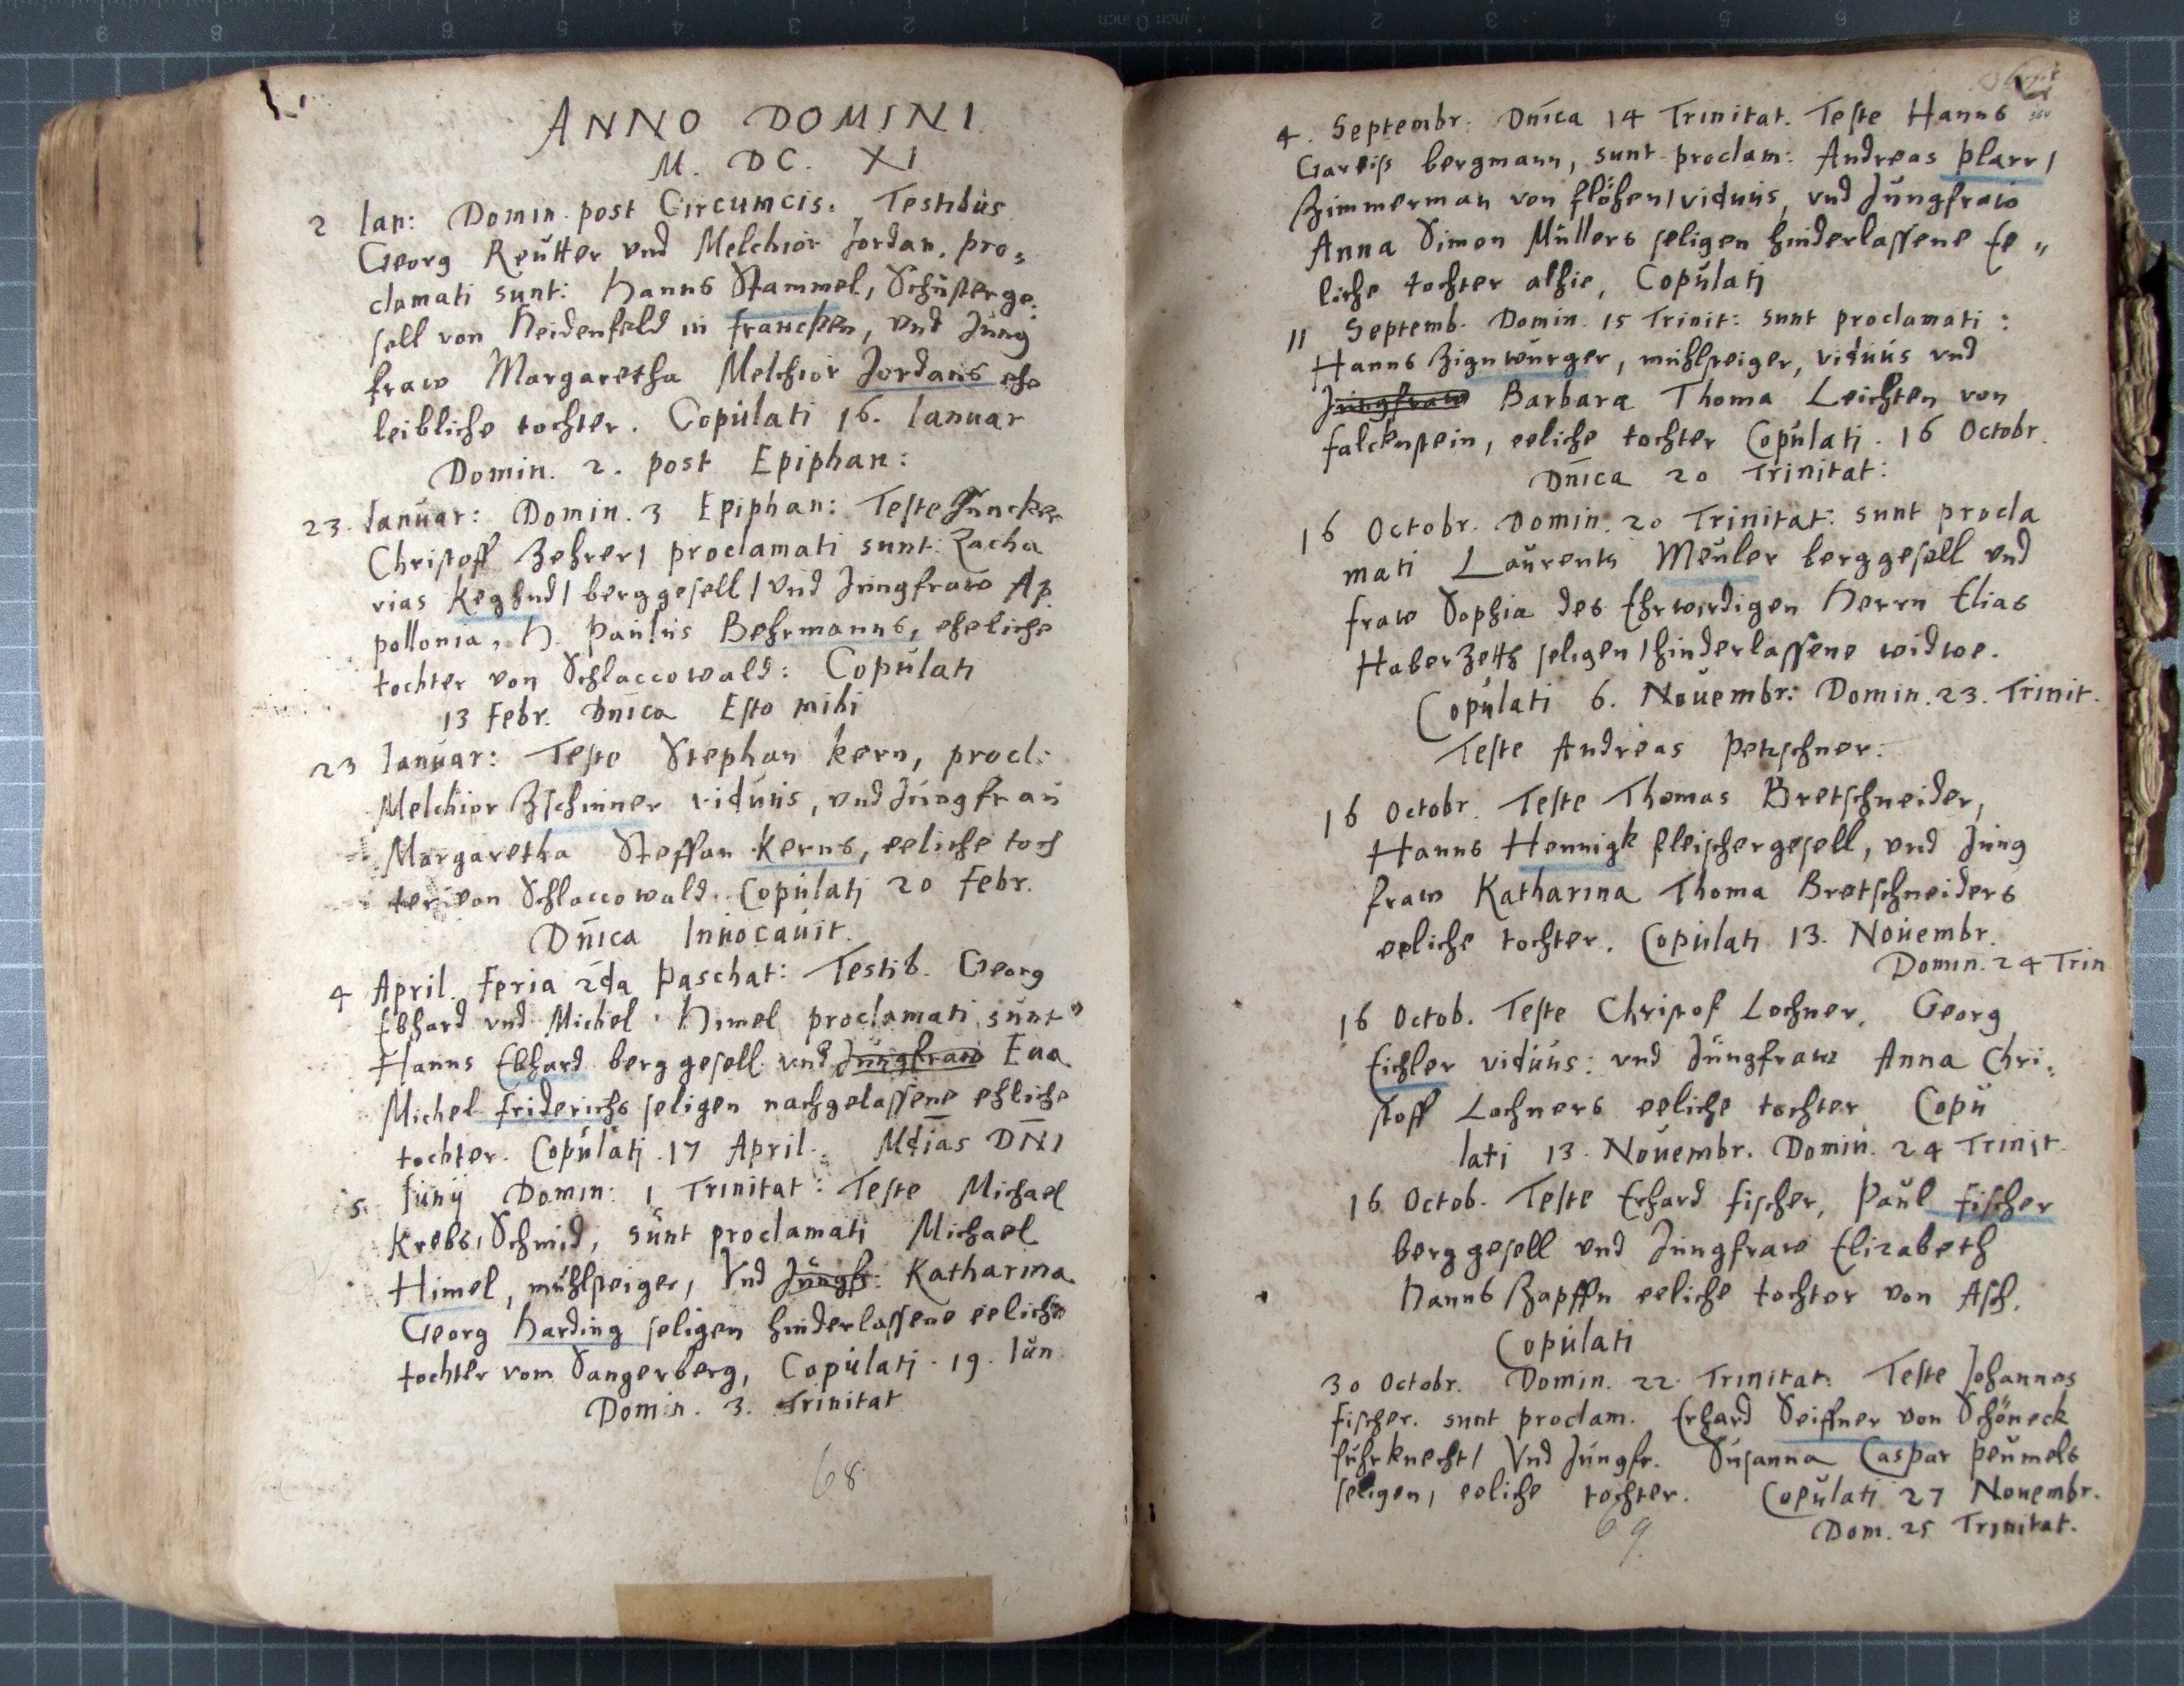 ANNO DOMINI
M. DC. XI
2 Ian: Domin. post Circumcis: Testibus
Georg Reutter vnd Melchior Jordan. pro,
clamati sunt: Hanns Stammel, Schuster ge,
sell von Heidenfeld in Francken, vnd Jung
fraw Margaretha Melchior Jordans ehe
leibliche tochter. Copulati 16. Ianuar
Domin. 2. post Epiphan:
23. Ianuar: Domin. 3 Epiphan: Teste Juncker
Christoff Zehrer, proclamati sunt: Zacha
rias / berggesell / vnd Jungfraw Ap
pollonia, H. Paulus Behrmanns, eheliche
tochter von Schlaccowald: Copulati
13 Febr. Dnica Esto mihi
23 Ianuar: Teste Stephan kern, procl:
Melchior Zschinner viduus, vnd Jungfrau
Margaretha Steffan Kerns, eeliche toch
ter von Schlaccowald. Copulati 20 Febr.
Dnica Inuocauit.
4 April. Feria 2da Paschat: Testib. Georg
Ebhard vnd Michel Himel proclamati sunt
Hanns Ebhard berggesell vnd Jungfraw Eua
Michel Friderichs seligen nachgelassene ehliche
tochter. Copulati 17 April. Mdias DNI
5. Iunij Domin: 1 Trinitat: Teste Michael
Krebs, Schmid, sunt proclamati Michael
Himel, mühlsteiger, Vnd Jungfr: Katharina
Georg Harding seligen hinderlassene eeliche
tochter vom Sangerberg, Copulati 19. Iun
Domin. 3. Trinitat
68
4. Septembr: Dnica 14 Trinitat. Teste Hanns
Gareiß bergmann, sunt proclam: Andreas Plarr /
Zimmerman von flöhen / viduus, vnd Jungfraw
Anna Simon Müllers seligen hinderlassene Ee„
liche tochter alhie, Copulati
11 Septemb. Domin. 15 Trinit: sunt proclamati:
Hanns Zignwurger, mühlsteiger, viduus vnd
Jungfraw Barbara Thoma Leichten von
falckenstein, eeliche tochter Copulati. 16 Octobr.
Dnica 20 Trinitat:
16 Octobr. Domin. 20 Trinitat: sunt procla
mati Laurents Meuler berggesell vnd
fraw Sophia des Ehrwirdigen Herrn Elias
Haberzetts seligen / hinderlassene widwe.
Copulati 6. Nouembr: Domin. 23. Trinit.
Teste Andreas Petzschner.
16 Octobr. Teste Thomas Bretschneider,
Hanns Hennigk fleischergesell, vnd Jung
fraw Katharina Thoma Bretschneiders
eeliche tochter. Copulati 13. Nouembr.
Domin. 24 Trin
16 Octob. Teste Christof Lochner. Georg
Eichler viduus: vnd Jungfraw Anna Chri,
stoff Lochners eeliche tochter Copu
lati 13. Nouembr. Domin. 24 Trinit.
16 Octob. Teste Erhard fischer, Paul fischer
berggesell vnd Jungfraw Elizabeth
Hanns Zapffn eeliche tochter von Asch.
Copulati
30 Octobr. Domin. 22. Trinitat: Teste Johannes
Fischer. sunt proclam. Erhard Seiffner von Schöneck
fuhrknecht / Vnd Jungfr. Susanna Caspar Peumels
seligen, eeliche tochter. Copulati 27 Nouembr.
69
Dom. 25 Trinitat.